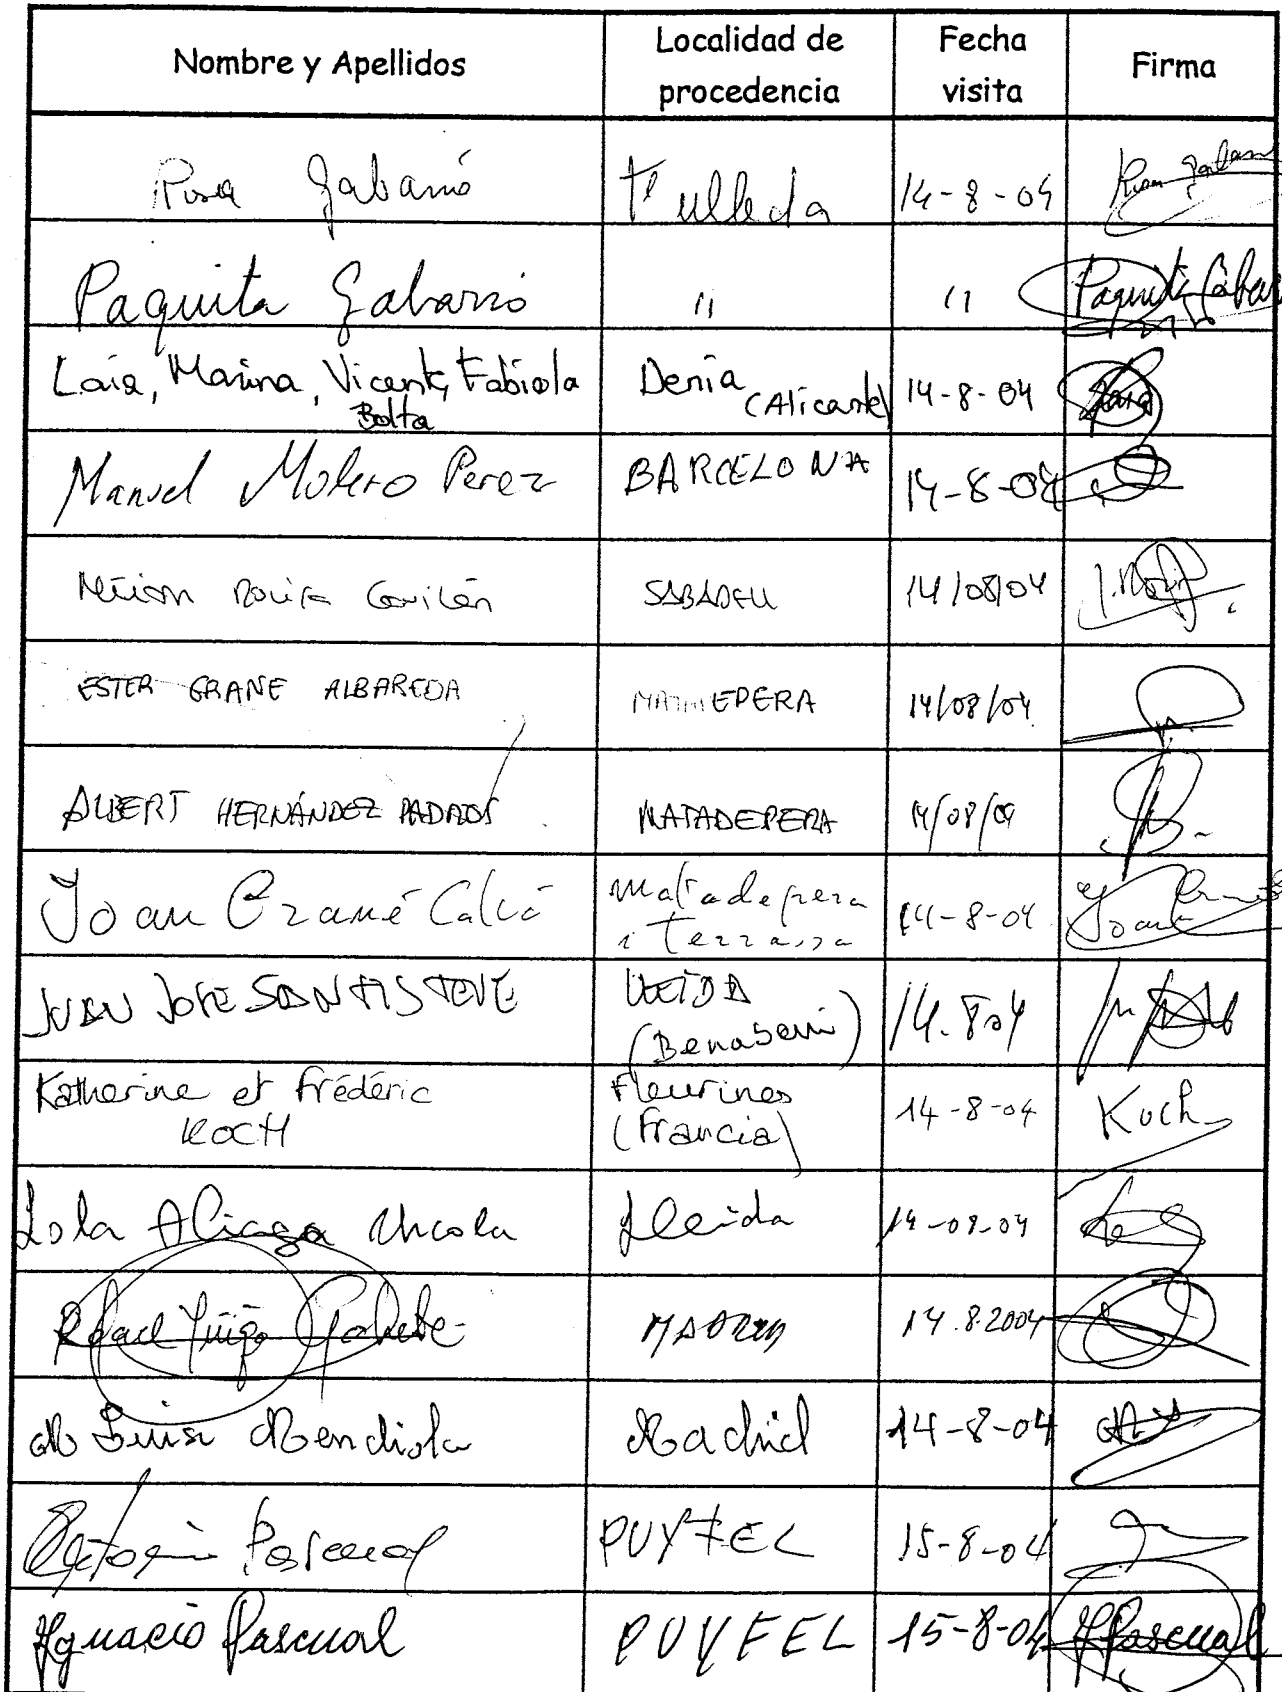 Nombre y Apellidos Localidad de procedencia Fecha visita Firma
Rosa Gabarró 14-8-04
Paquita Gabarró " " Paquita Gabar
Laia, Marina, Vicent, Fabiola Bolta Denia (Alicante) 14-8-04 Laia
Manuel Molero Perez BARCELONA 14-8-04
SABADELL 14/08/04
ESTER GRANE ALBAREDA 14/08/04
ALBERT HERNÁNDEZ PADROS MATADEPERA 14/08/04
Joan Grané Calvó matadepera i terrassa 14-8-04 Joan
JUAN JOSE SANTISTEVE LLEIDA 14.8.04
Katherine et Frédéric KOCH Fleurines (Francia) 14-8-04 Koch
Lola Aliaga Lleida 14-08-04
Rafael MADRID 14.8.2004
Mª Luisa Mendiola Madrid 14-8-04
Pascual PUYFEL 15-8-04
Ygnacio Pascual PUYFEL 15-8-04 YPascual